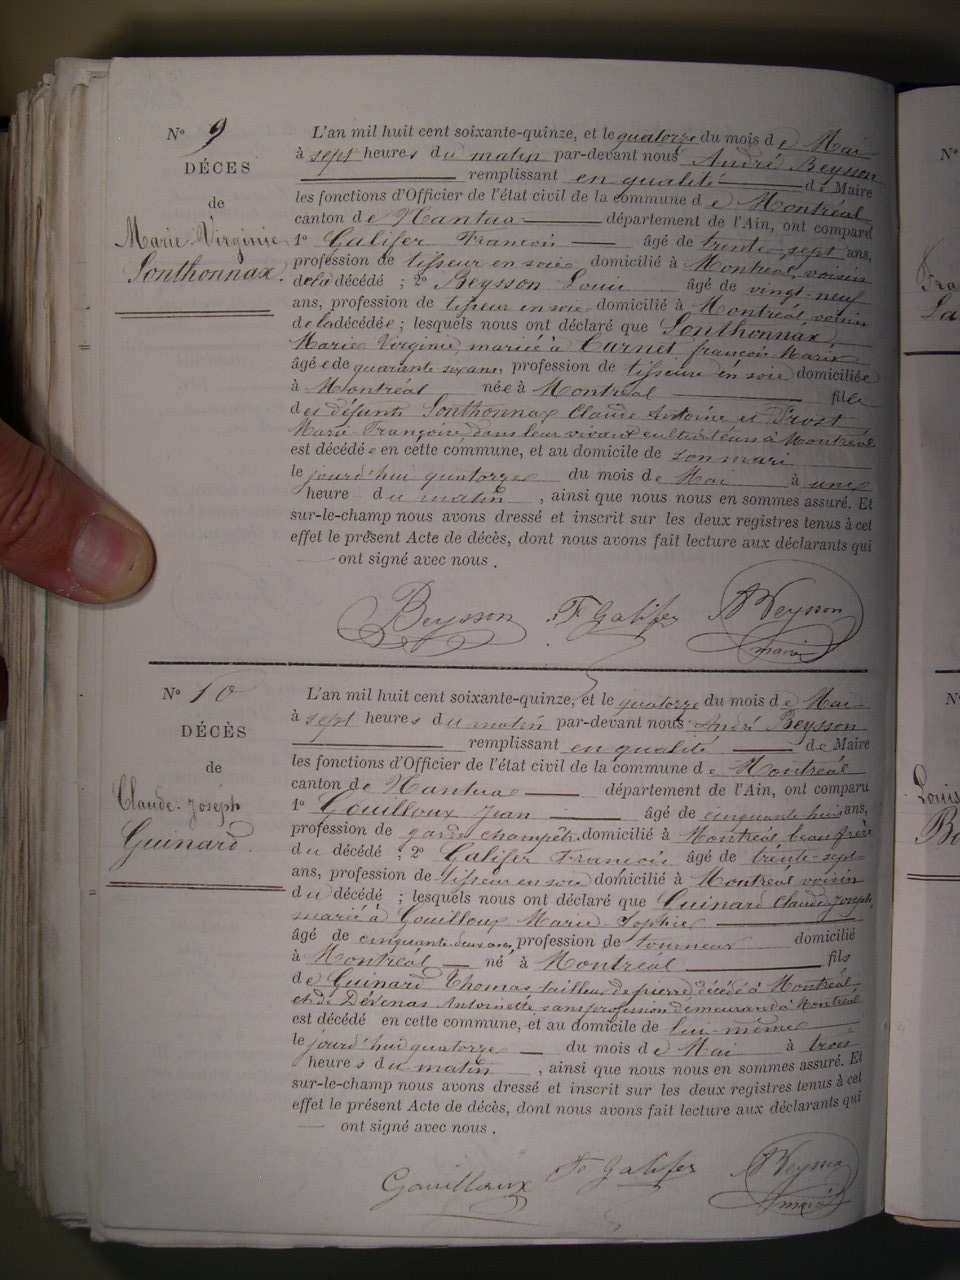 N° 9
DÉCES
de
Marie Virginie
Sonthonnax.
L'an mil huit cent soixante-quinze, et le quatorze du mois de Mai
à sept heures du matin par-devant nous André Beysson
remplissant en qualité de Maire
les fonctions d'Officier de l'état civil de la commune de Montréal
canton de Nantua département de l'Ain, ont comparu
1° Galifer François âgé de trente-sept ans,
profession de tisseur en soie domicilié à Montréal, voisin
de la décédé ; 2° Beysson Louis âgé de vingt-neuf
ans, profession de tisseur en soie domicilié à Montréal, voisin
de la décédée ; lesquels nous ont déclaré que Sonthonnax
Marie Virginie, mariée à Carnet françois Marie
âgée de quarante-six ans, profession de tisseuse en soie domiciliée
à Montréal née à Montréal fille
des défunts Sonthonnax Claude Antoine et Prost
Marie Françoise, dans leur vivant cultivateurs à Montréal
est décédée en cette commune, et au domicile de son mari
le jourd'hui quatorze du mois de Mai à une
heure du matin, ainsi que nous nous en sommes assuré. Et
sur-le-champ nous avons dressé et inscrit sur les deux registres tenus à cet
effet le présent Acte de décès, dont nous avons fait lecture aux déclarants qui
ont signé avec nous.
Beysson F. Galifer A Beysson
maire
N° 10
DÉCÈS
de
Claude-Joseph
Guinard
L'an mil huit cent soixante-quinze, et le quatorze du mois de Mai
à sept heures du matin par-devant nous André Beysson
remplissant en qualité de Maire
les fonctions d'Officier de l'état civil de la commune de Montréal
canton de Nantua département de l'Ain, ont comparu
1° Gouilloux Jean âgé de cinquante ans,
profession de garde champêtre domicilié à Montréal beau frère
du décédé ; 2° Galifer François âgé de trente-sept
ans, profession de tisseur en soie domicilié à Montréal voisin
du décédé ; lesquels nous ont déclaré que Guinard Claude Joseph,
marié à Gouilloux Marie Sophie
âgé de cinquante-deux ans, profession de tourneur domicilié
à Montréal né à Montréal fils
de Guinard Thomas tailleur de pierre décédé à Montréal,
et de Dévenas Antoinette sans profession demeurand à Montréal
est décédé en cette commune, et au domicile de lui-même
le jourd'hui quatorze du mois de Mai à trois
heures du matin, ainsi que nous nous en sommes assuré. Et
sur-le-champ nous avons dressé et inscrit sur les deux registres tenus à cet
effet le présent Acte de décès, dont nous avons fait lecture aux déclarants qui
ont signé avec nous.
Gouilloux F. Galifer A Beysson
maire
N°
Fra
La
N°
Louis